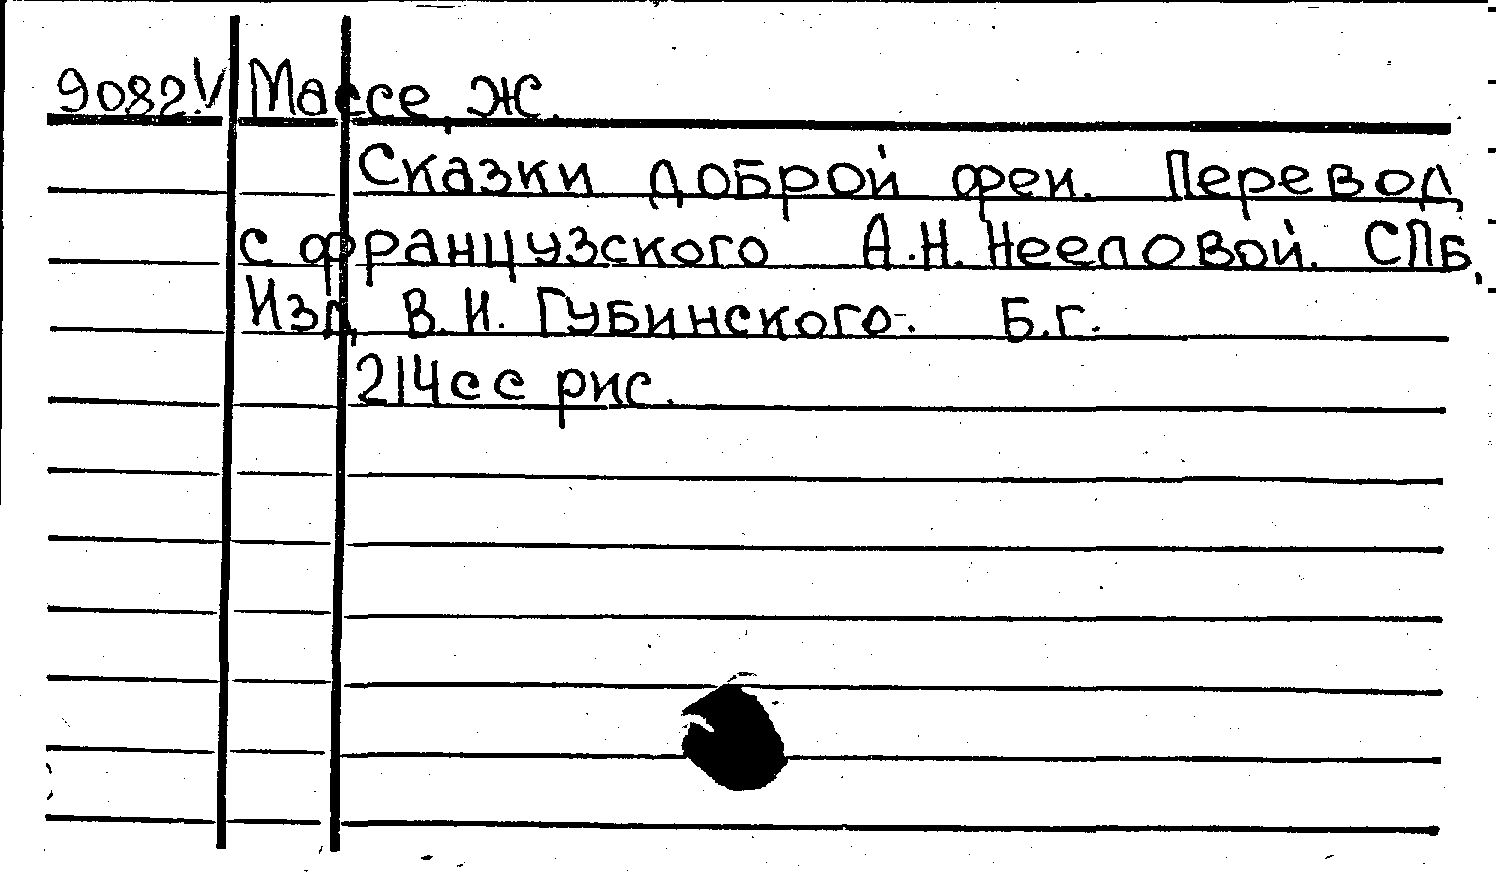 9082V Массе, Ж.
Сказки доброй феи. Перевод
с французского А.Н. Нееловой. СПБ,
Изд. В.И. Губинского. Б.г.
214 с с рис.